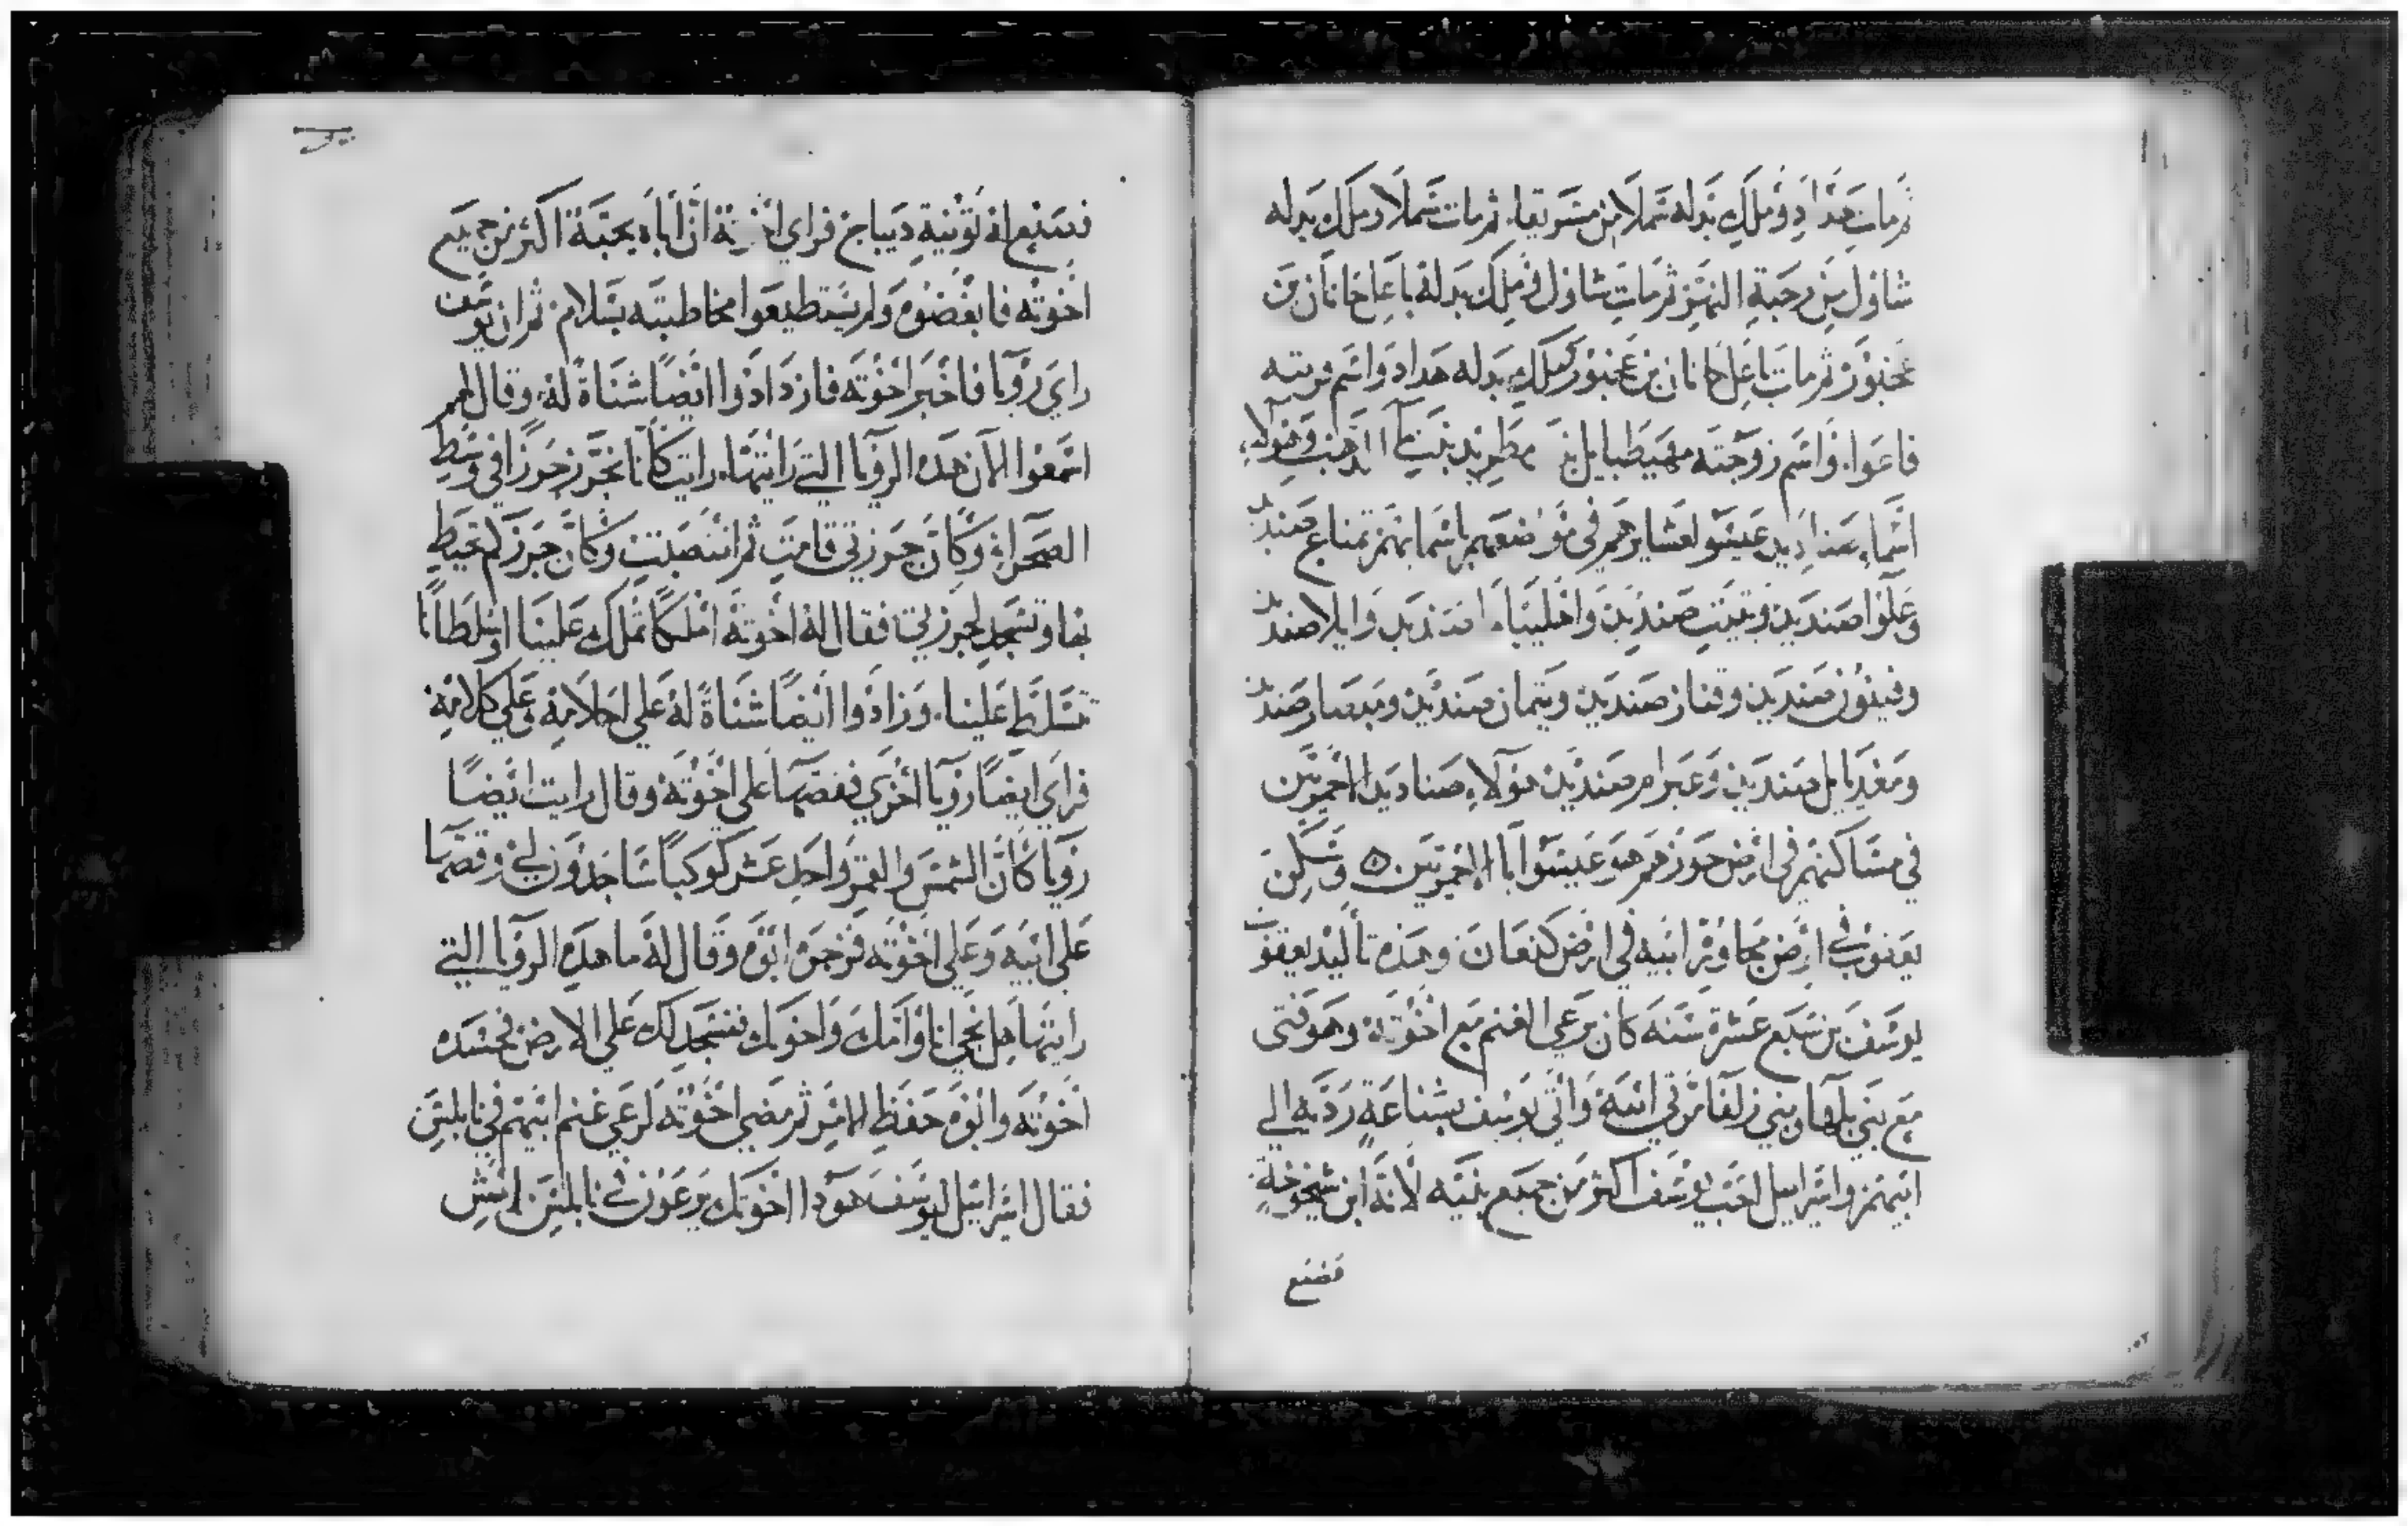 ثم مات هداد وملك بدله شملا من مسريقا، ثم مات شملا وملك بدله
شاول من رحبة النهر ثم مات شاول فملك بدله باعل حانان بن
عخبور ثم مات باعل حانان بن عخبور وملك بدله هداد واسم قريته
فاعوا، واسم زوجته مهيطبايل بنة مطريد بنت الذهب وهولاء
اسماء صناديد عيسو لعشايرهم في مواضعهم باسمايهم تمناع صنديد
وعلوا صنديد ويتيت صنديد واهليباما صنديد وايلا صنديد
وفينون صنديد وقناز صنديد ويتمان صنديد ومبصار صنديد
ومغديايل صنديد وعيرام صنديد هولاء صناديد الاحمريين
في مساكنهم في ارض حوزهم هو عيسوا ابا الاحمريين ۞ وسكن
يعقوب في ارض مجاورة ابيه في ارض كنعان وهذه تأليد يعقوب
يوسف بن سبع عشرة سنة كان يرعي الغنم مع اخوته وهو فتى
مع بني بلها وبني زلفا مرتي ابيه واتى يوسف بشناعة ردية الي
ابيهم واسراييل احب يوسف اكثر من جميع بنيه لانه ابن شيخوخة
فصنع
فصنع له تونية ديباج فراي اخوته ان اباه يحبه اكثر من جميع
اخوته فابغضوه ولم يستطيعوا مخاطبته بسلام ثم ان يوسف
راي رويا فاخبر اخوته فازدادوا ايضا شناة له، وقال لهم
اسمعوا الان هذه الرويا التي رايتها، رايت كانا نجرز جرزا في وسط
الصحراء وكان جرزتي قامت ثم انتصبت وكان جرزكم تحيط
بها وتسجد لجرزتي فقال له اخوته املكا تملك علينا او سلطانا
تتسلط علينا، وزادوا ايضا شناة له علي احلامه وعلي كلامه
فراي ايضا رويا اخري فقصها علي اخوته وقال رايت ايضا
رويا كان الشمس والقمر واحد عشر كوكبا ساجدون لي وقصها
علي ابيه وعلي اخوته فزجره ابوه وقال له ما هذه الرويا التي
رايتها هل نجي انا وامك واخوتك فنسجد لك علي الارض فحسده
اخوته وابوه حفظ الامر ثم مضي اخوته لرعي غنم ابيهم في نابلس
فقال اسراييل ليوسف هوذا اخوتك يرعون في نابلس امش